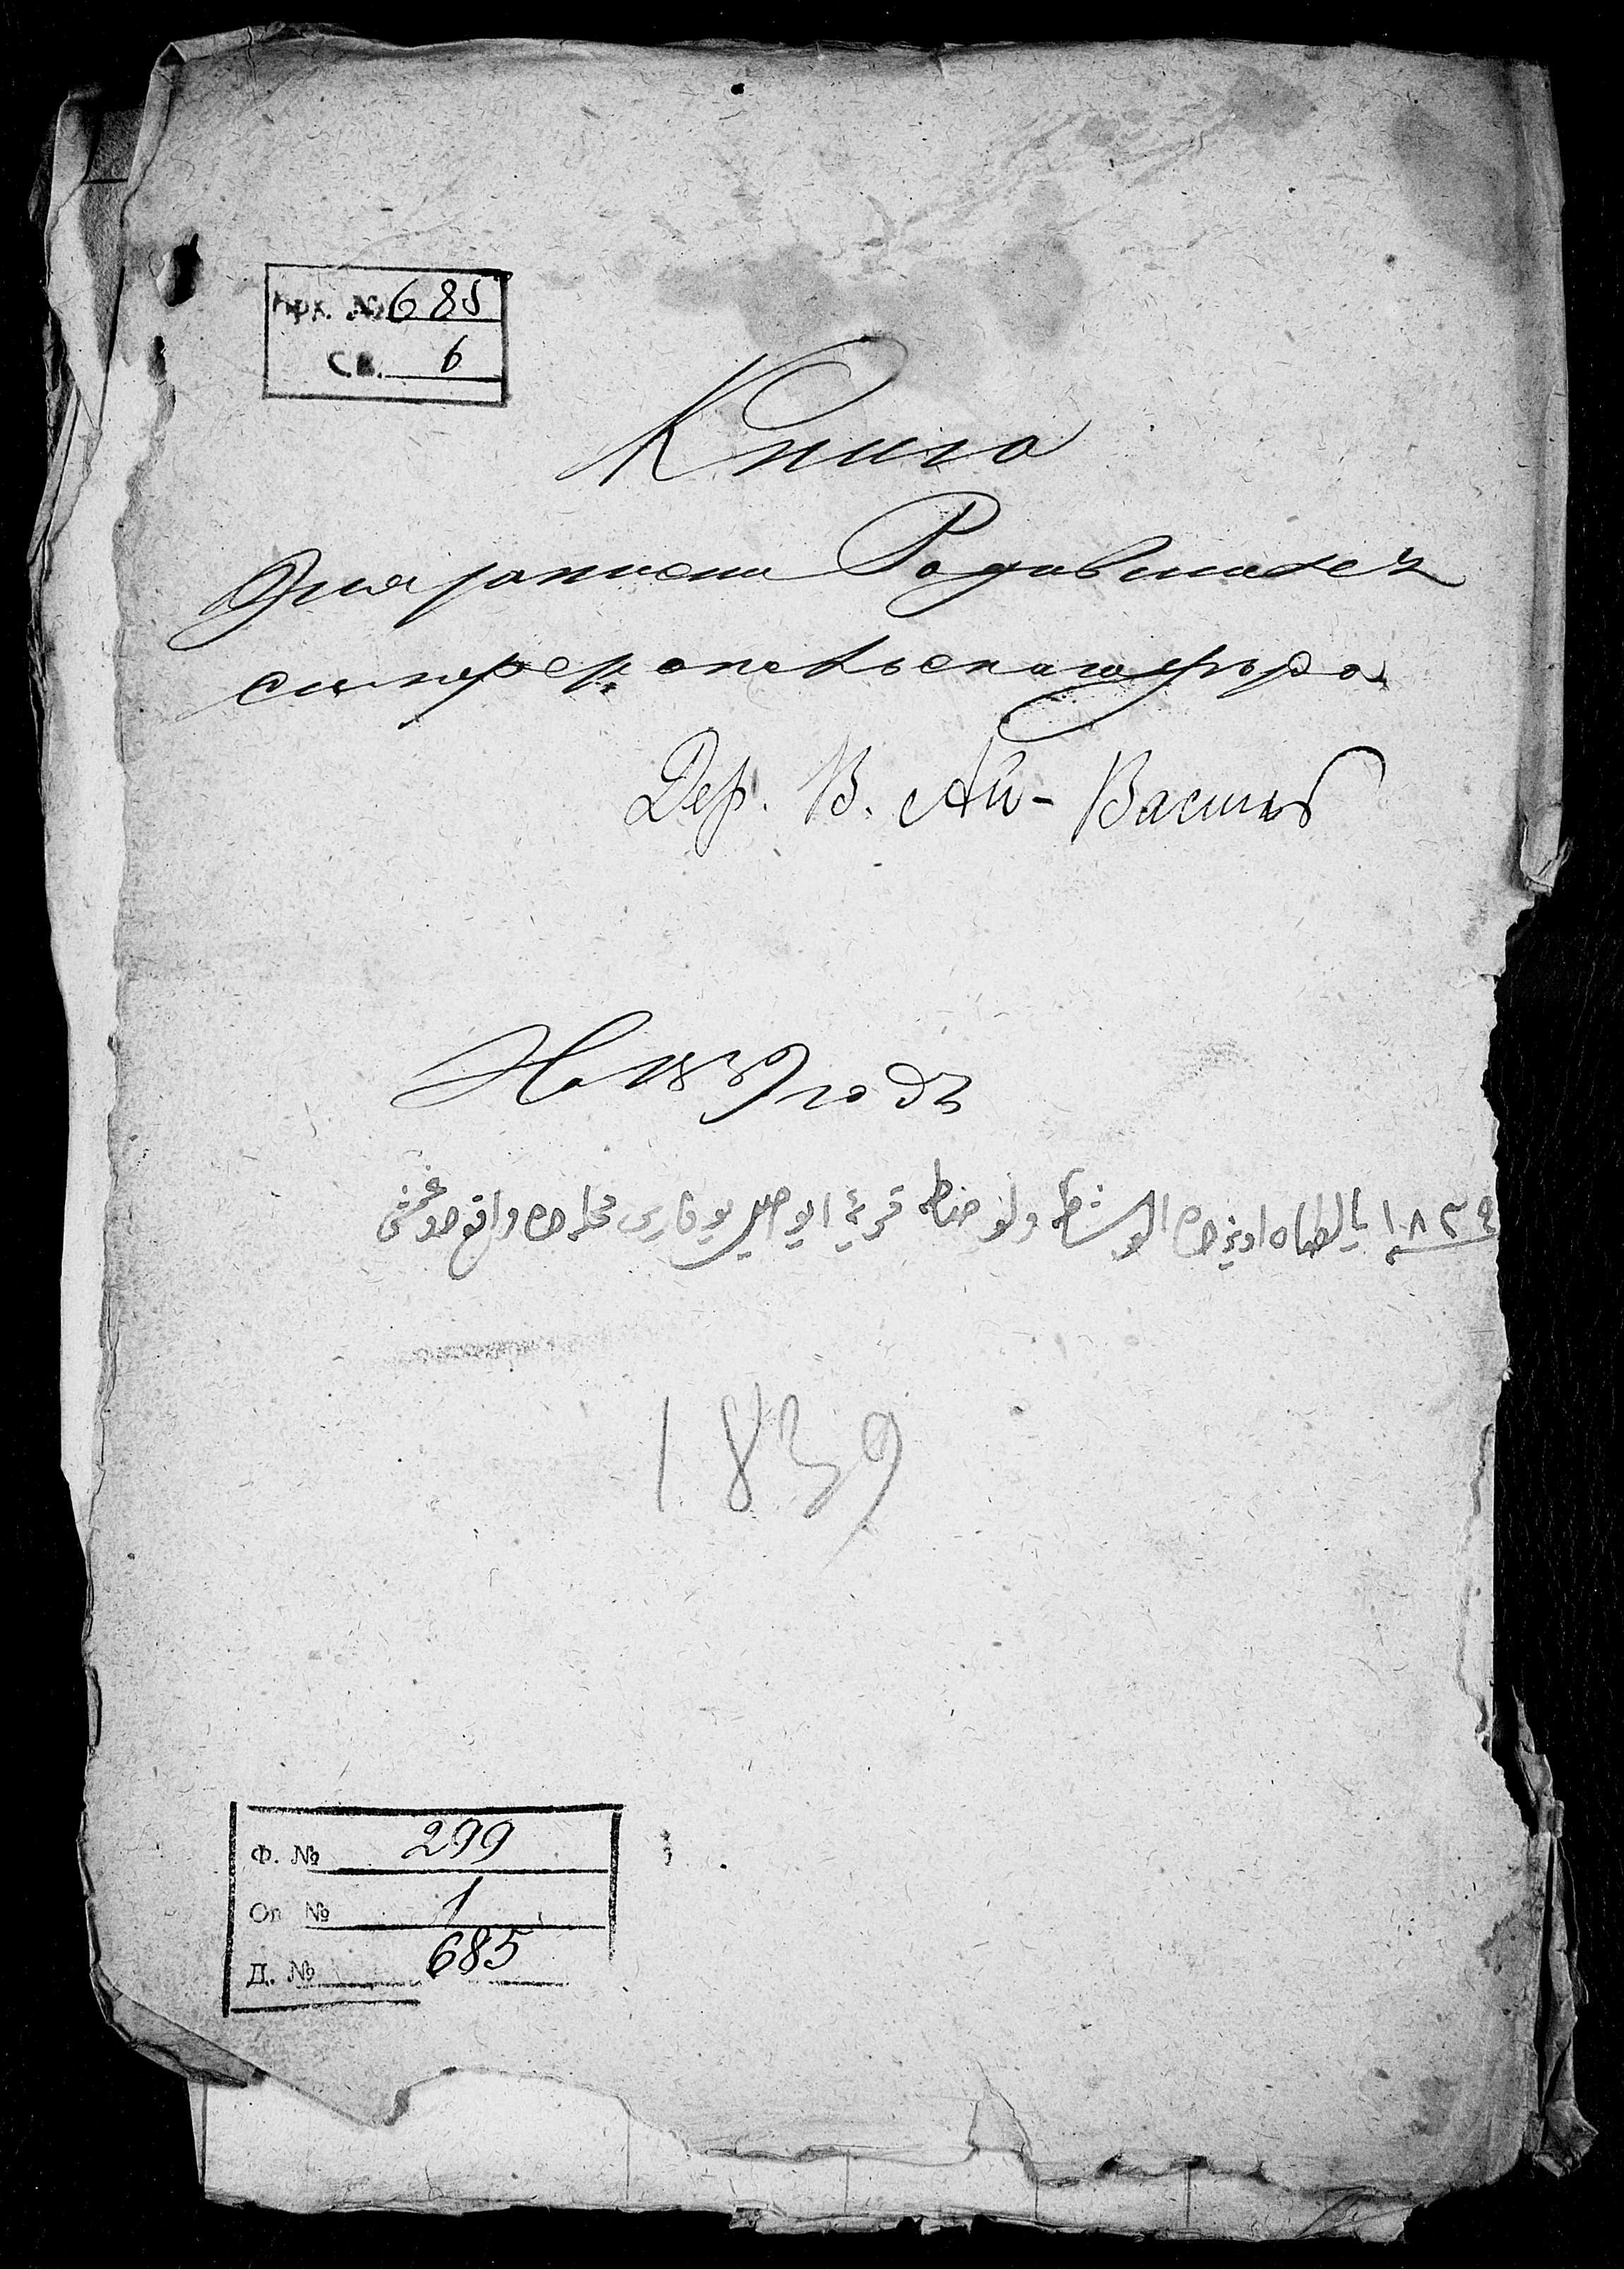 Арх. № 685
Св. 6
Книга
Для записки Родившихся
симферопольскаго уезда
Дер. В. Ай-Василь
На 1839 годъ
١٨٣٩ يالطه قرية محله
1839
Ф. № 299
Оп № 1
Д. № 685